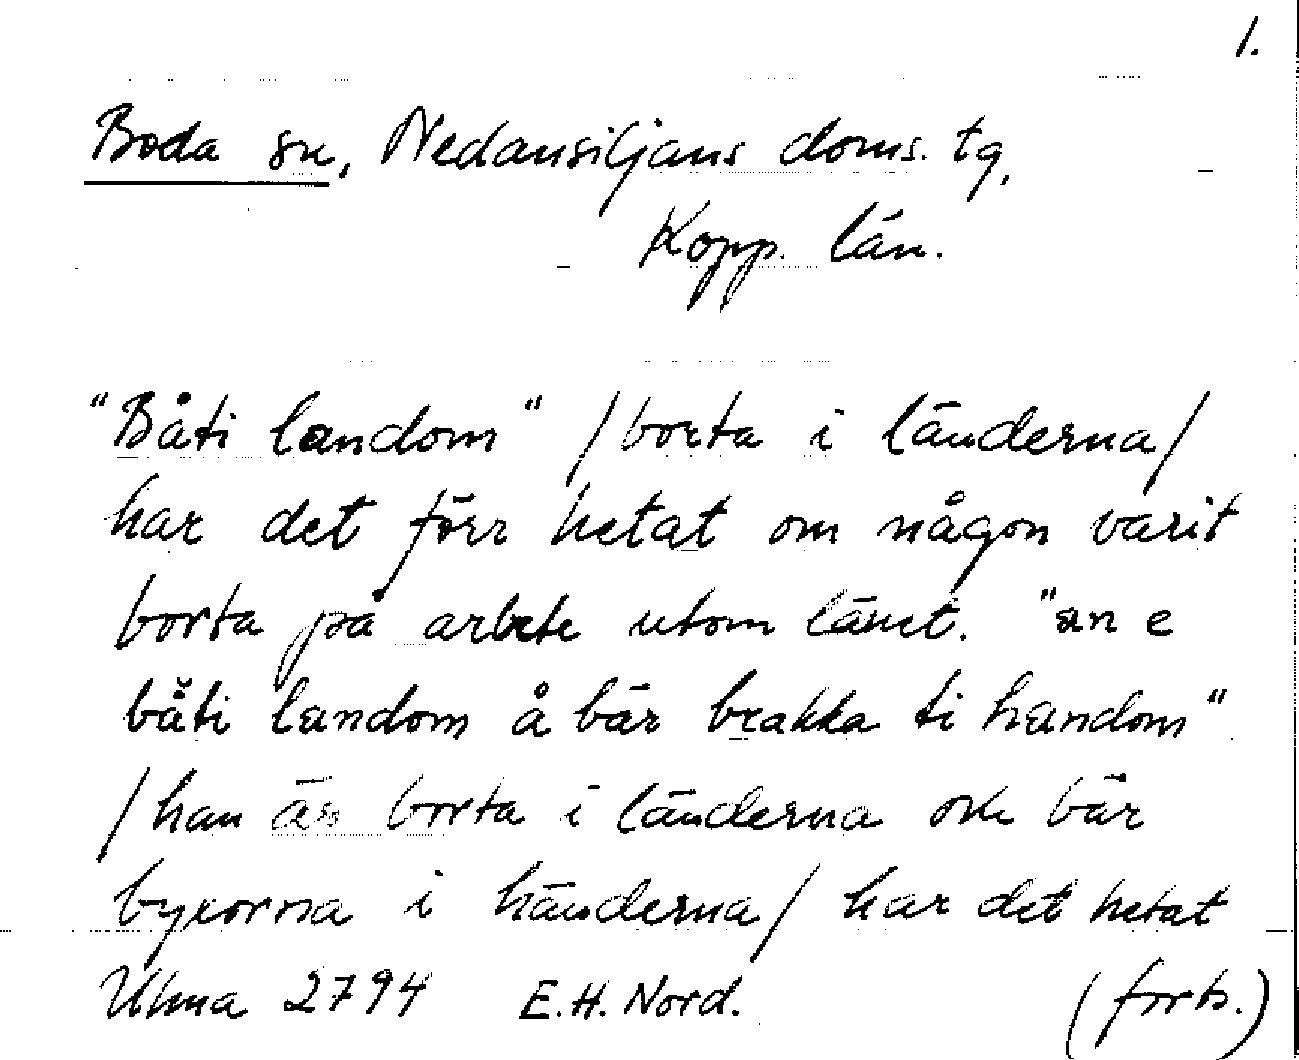 1.
Boda sn, Nedansiljans doms. tg,
Kopp. län.
"Båti landom" /borta i länderna/
har det förr hetat om någon varit
borta på arbete utom länet. "an e
båti landom å bär brakka ti handom"
/han är borta i länderna och bär
byxorna i händerna/ har det hetat
Ulma 2794 E.H. Nord. (forts.)